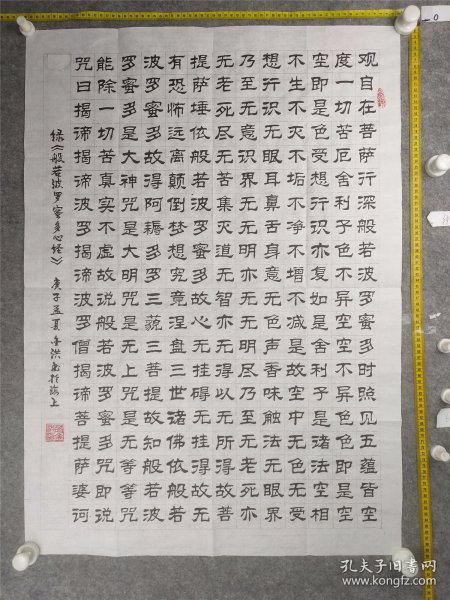 观自在菩萨行深般若波罗蜜多时照见五蕴皆空
度一切苦厄舍利子色不异空空不异色色即是空
空即是色受想行识亦复如是舍利子是诸法空相
不生不灭不垢不净不增不减是故空中无色无受
想行识无眼耳鼻舌身意无色声香味触法无眼界
乃至无意识界无无明亦无无明尽乃至无老死亦
无老死尽无苦集灭道无智亦无得以无所得故菩
提萨埵依般若波罗蜜多故心无挂碍无挂碍故无
有恐怖远离颠倒梦想究竟涅盘三世诸佛依般若
波罗蜜多故得阿耨多罗三藐三菩提故知般若波
罗蜜多是大神咒是大明咒是无上咒是无等等咒
能除一切苦真实不虚故说般若波罗蜜多咒即说
咒曰揭谛揭谛波罗揭谛波罗僧揭谛菩提萨婆诃
录《般若波罗蜜多心经》 庚子孟夏 于海上
孔夫子旧书网
www.kongfz.com